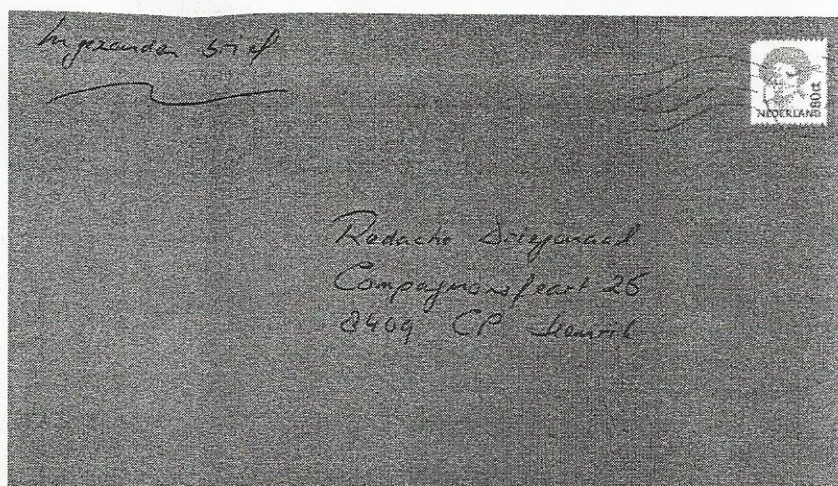 Ingezonden brief
NEDERLAND 80ct
Redactie Driegemaad
Compagnonsfeart 26
8409 CP Hemrik